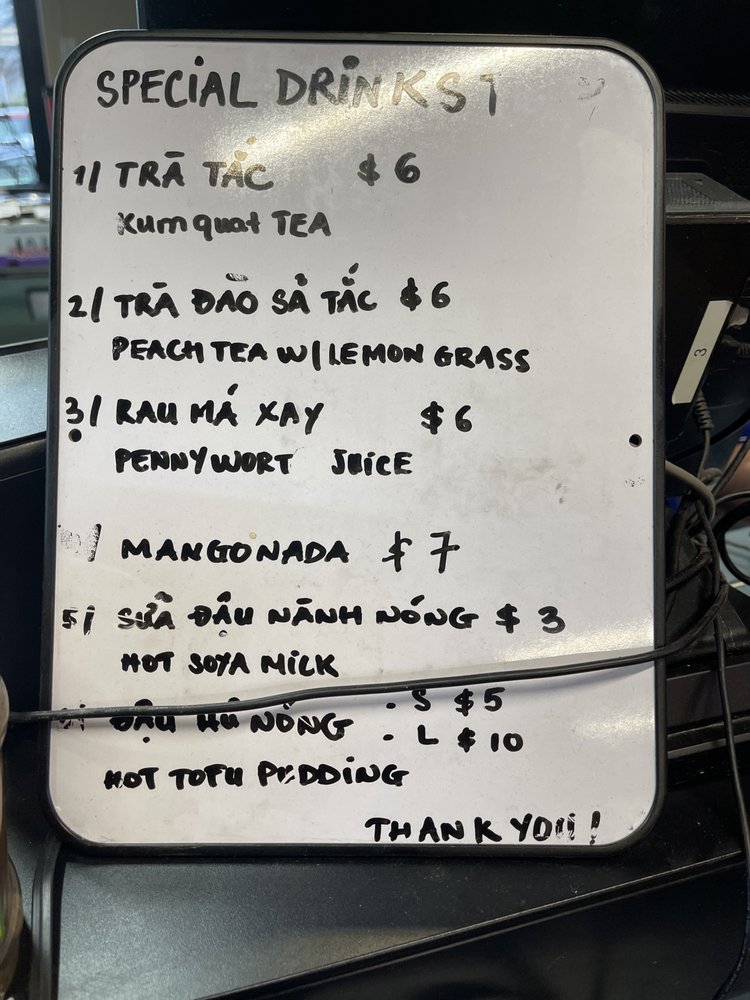 SPECIAL DRINKS
1/ TRÀ TẮC $6
Kumquat TEA
2/ TRÀ ĐÀO SẢ TẮC $6
PEACH TEA W/ LEMON GRASS
3/ RAU MÁ XAY $6
PENNYWORT JUICE
MANGONADA $7
5/ SỮA ĐẬU NÀNH NÓNG $3
HOT SOYA MILK
ĐẬU HŨ NÓNG . S $5
. L $10
HOT TOFU PUDDING
THANK YOU!
3